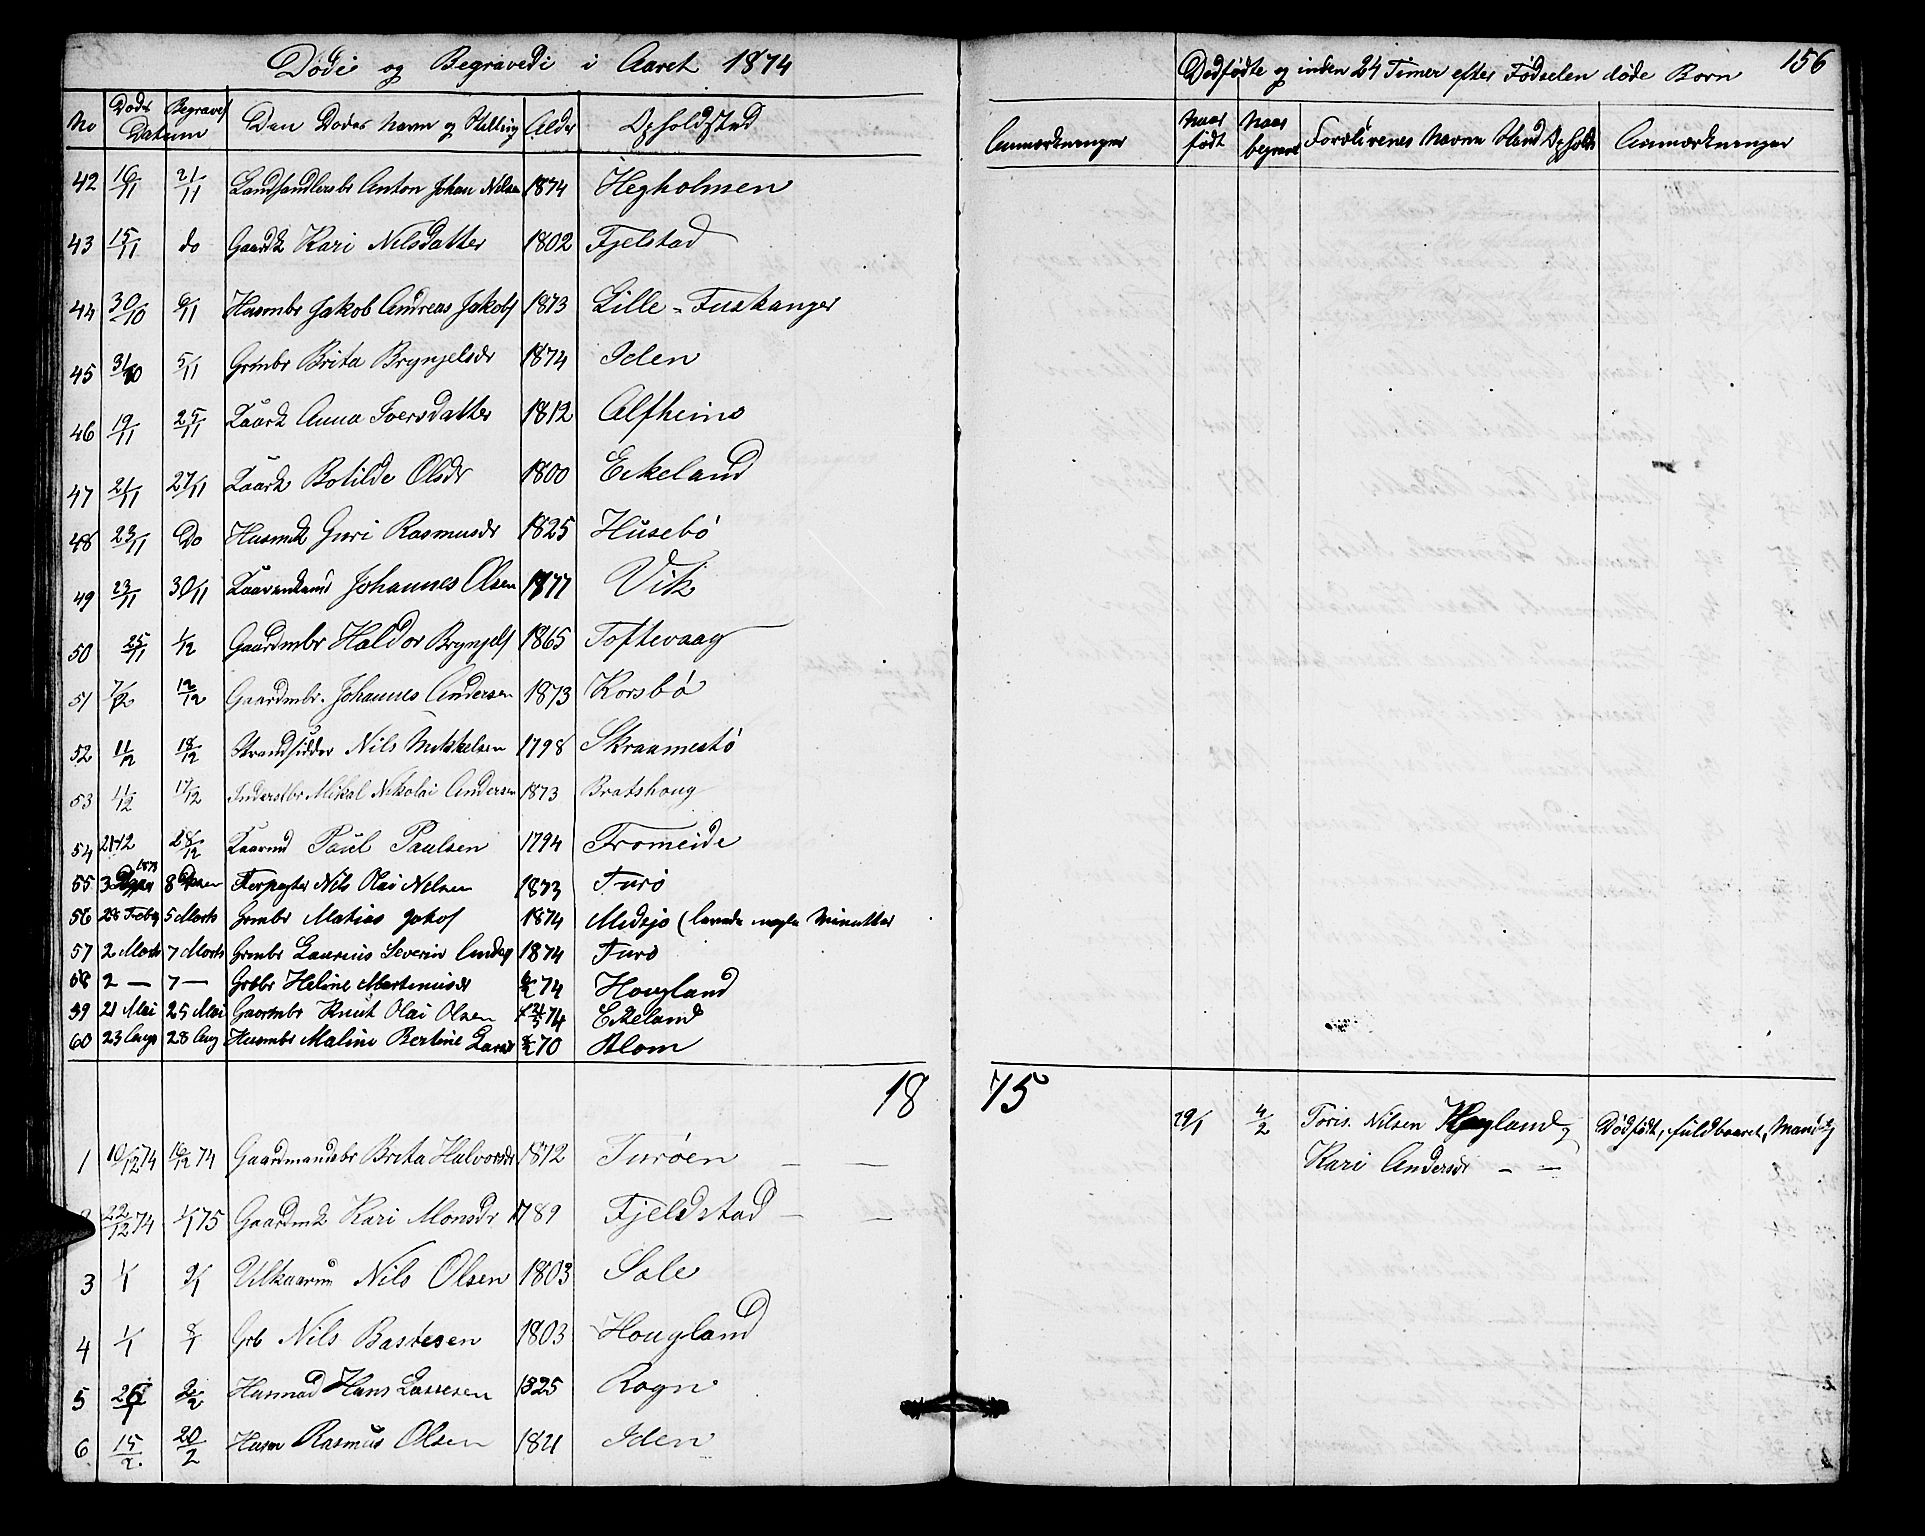 Døde og Begravede i Aaret 1874
No Døds Begravels Datum Den Dødes Navn og Stilling Alder Opholdsted
42 16/11 21/11 Landhandlersbr Anton Johan Nilsen 1874 Hegholmen
43 15/11 do Gaardk Kari Nilsdatter 1802 Fjelstad
44 30/10 6/11 Husmbr Jakob Andreas Jakobs 1873 Lille-Fuskanger
45 31/10 5/11 Grmbr Brita Brynjelsdr 1874 Iden
46 19/11 25/11 Kaark Anna Iversdatter 1812 Alfheim
47 21/11 27/11 Kaark Botilde Olsdr 1800 Eikeland
48 23/11 Do Husmk Guri Rasmusdr 1825 Husebø
49 23/11 30/11 Johannes Olsen Vik
50 25/11 1/12 Gaardmbr Haldor Brynjels 1865 Toftevaag
51 7/12 12/12 Gaardmbr. Johannes Andersen 1873 Korsbø
52 11/12 18/12 Strandsidder Nils Mikkelsen 1798 Skraamestø
53 11/12 17/12 Inderstbr Mikal Nikolai Andersen 1873 Bratshoug
54 21/12 28/12 Kaarmd Paul Paulsen 1794 Fromeide
55 1873 Nils Olai Nilsen 1873 Turø
56 28 Feby 5 Marts Grmbr Matias Jakobs 1874 Midsjø (levede nogle Minutter
57 2 Marts 7 Marts Grmbr Laurius Severin Anders 1874 Turø
58 2 — 7 — Grbbr Heline Martinusdr 74 Hougland
59 21 Mai 25 Mai Gaarmbr Knut Olai Olsen 74 Ekeland
60 23 Aug 28 Aug Husmbr Maline Bertine Larsd 70 Blom
18
1 10/12 74 16/12 74 Gaardmandsbr Brita Halvorsdr 1872 Turøen — —
22/12 74 1/1 75 Gaardmk Kari Monsdr 1789 Fjeldstad — —
3 1/1 9/1 Nils Olsen 1803 Sole
4 1/1 8/1 Grb Nils Bastesen 1803 Hougland
5 26/1 2/2 Husmad Hans Lassesen 1825 Rogn
6 15/2 20/2 Husm Rasmus Olsen 1821 Iden
156
Dødfødte og inden 24 Timer efter Fødselen døde Børn
Anmærkninger Naar født Naar begravet Forældrenes Navne Stand Opholds Anmærkninger
75
29/1 4/2 Toris. Nilsen Hougland og Dødfødt, fuldbaaret, Mandkj
Kari Andersdr — —